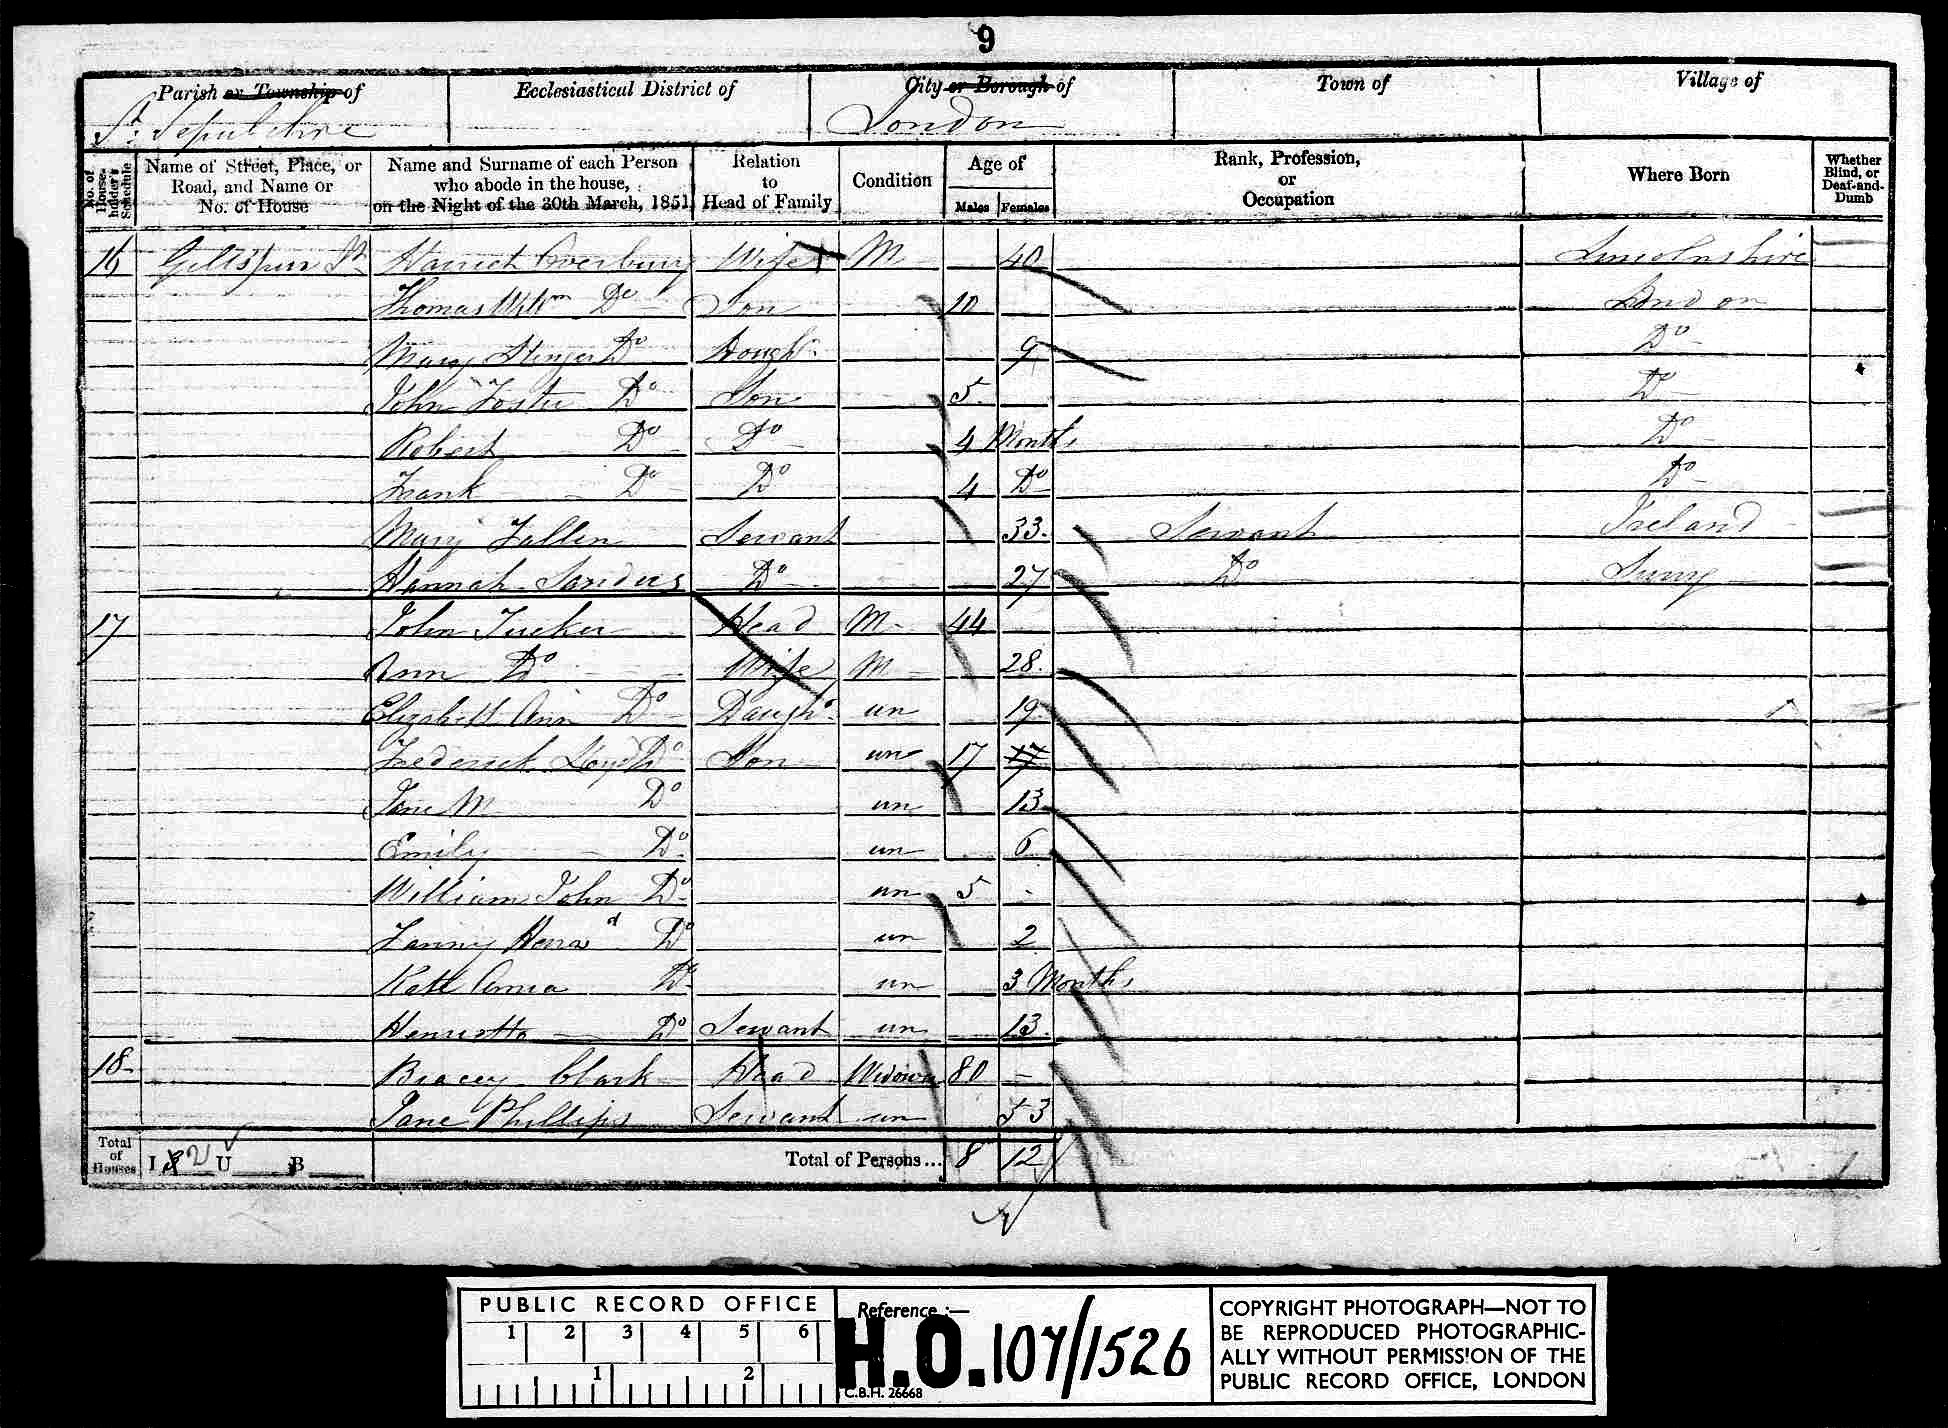 9
Parish or Township of Ecclesiastical District of City or Borough of Town of Village of
St. Sepulchre London
No. of House-holder's Schedule Name of Street, Place, or Road, and Name or No. of House Name and Surname of each Person who abode in the house, on the Night of the 30th March, 1851 Relation to Head of Family Condition Age of Males Females Rank, Profession, or Occupation Where Born Whether Blind, or Deaf-and-Dumb
16 Giltspur St Harriet Overbury Wife M 40 Lincolnshire
Thomas Willm Do Son 10 London
Mary Do Daughr 9 Do
John Foster Do Son 5 Do
Robert Do Do 4 Months Do
Frank Do Do 4 Do Do
Mary Fallen Servant 33 Servant Ireland
Hannah Sanders Do 27 Do Surry
17 John Tucker Head M 44
Ann Do Wife M 28
Elizabeth Ann Do Daughr un 19
Frederick Do Son un 17 17
Jane M Do un 13
Emily Do un 6
William John Do un 5 -
Fanny Do un 2
Kate Do un 3 Months
Henrietta Do Servant un 13
18 Bracey Clark Head Widower 80 -
Jane Phillips Servant un 53
Total of Houses I 2 U B Total of Persons... 8 12
PUBLIC RECORD OFFICE
1 2 3 4 5 6
1 2
Reference :-
H.O. 107/1526
C.B.H. 26668
COPYRIGHT PHOTOGRAPH—NOT TO
BE REPRODUCED PHOTOGRAPHIC-
ALLY WITHOUT PERMISSION OF THE
PUBLIC RECORD OFFICE, LONDON